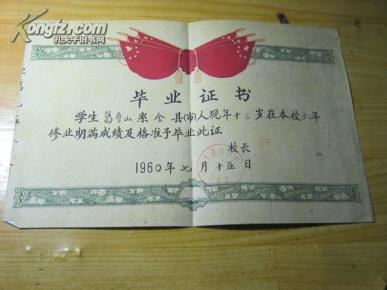 Kongfz.com
孔夫子旧书网
毕业证书
学生葛春山 系 金 县(市)人现年十三岁在本校六年
修业期满成绩及格准予毕业此证
校长
1960年七月十五日